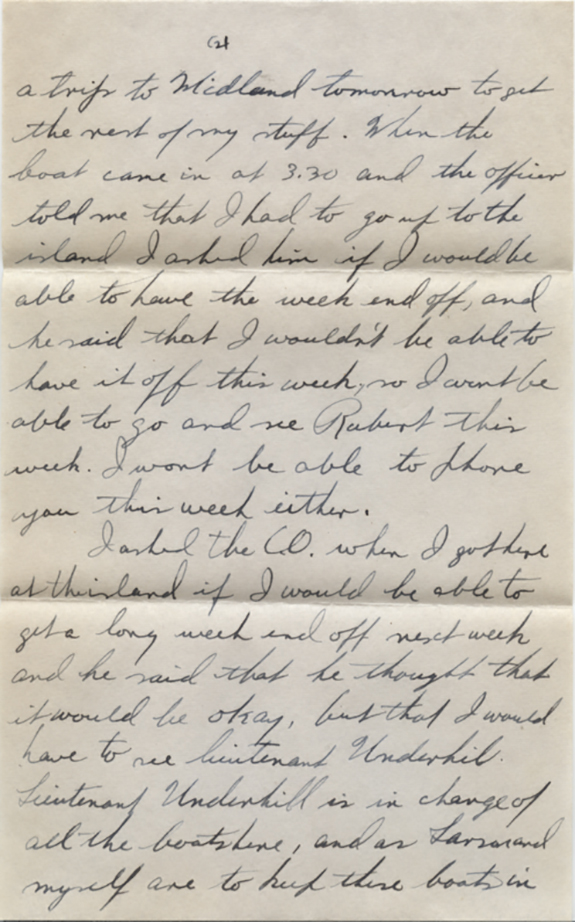 (2)
a trip to Midland tomorrow to get
the rest of my stuff. When the
boat came in at 3.30 and the officer
told me that I had to go up to the
island I asked him if I would be
able to have the week end off, and
he said that I wouldn't be able to
have it off this week, so I wont be
able to go and see Robert this
week. I wont be able to phone
you this week either.
I asked the C.O. when I got here
at this island if I would be able to
get a long week end off next week
and he said that he thought that
it would be okay, but that I would
have to see lieutenant Underhil.
Lieutenant Underhill is in charge of
all the boats here, and as and
myself are to keep these boats in